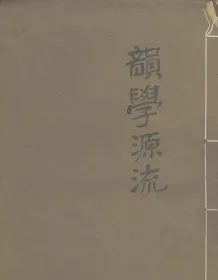 韻學源流